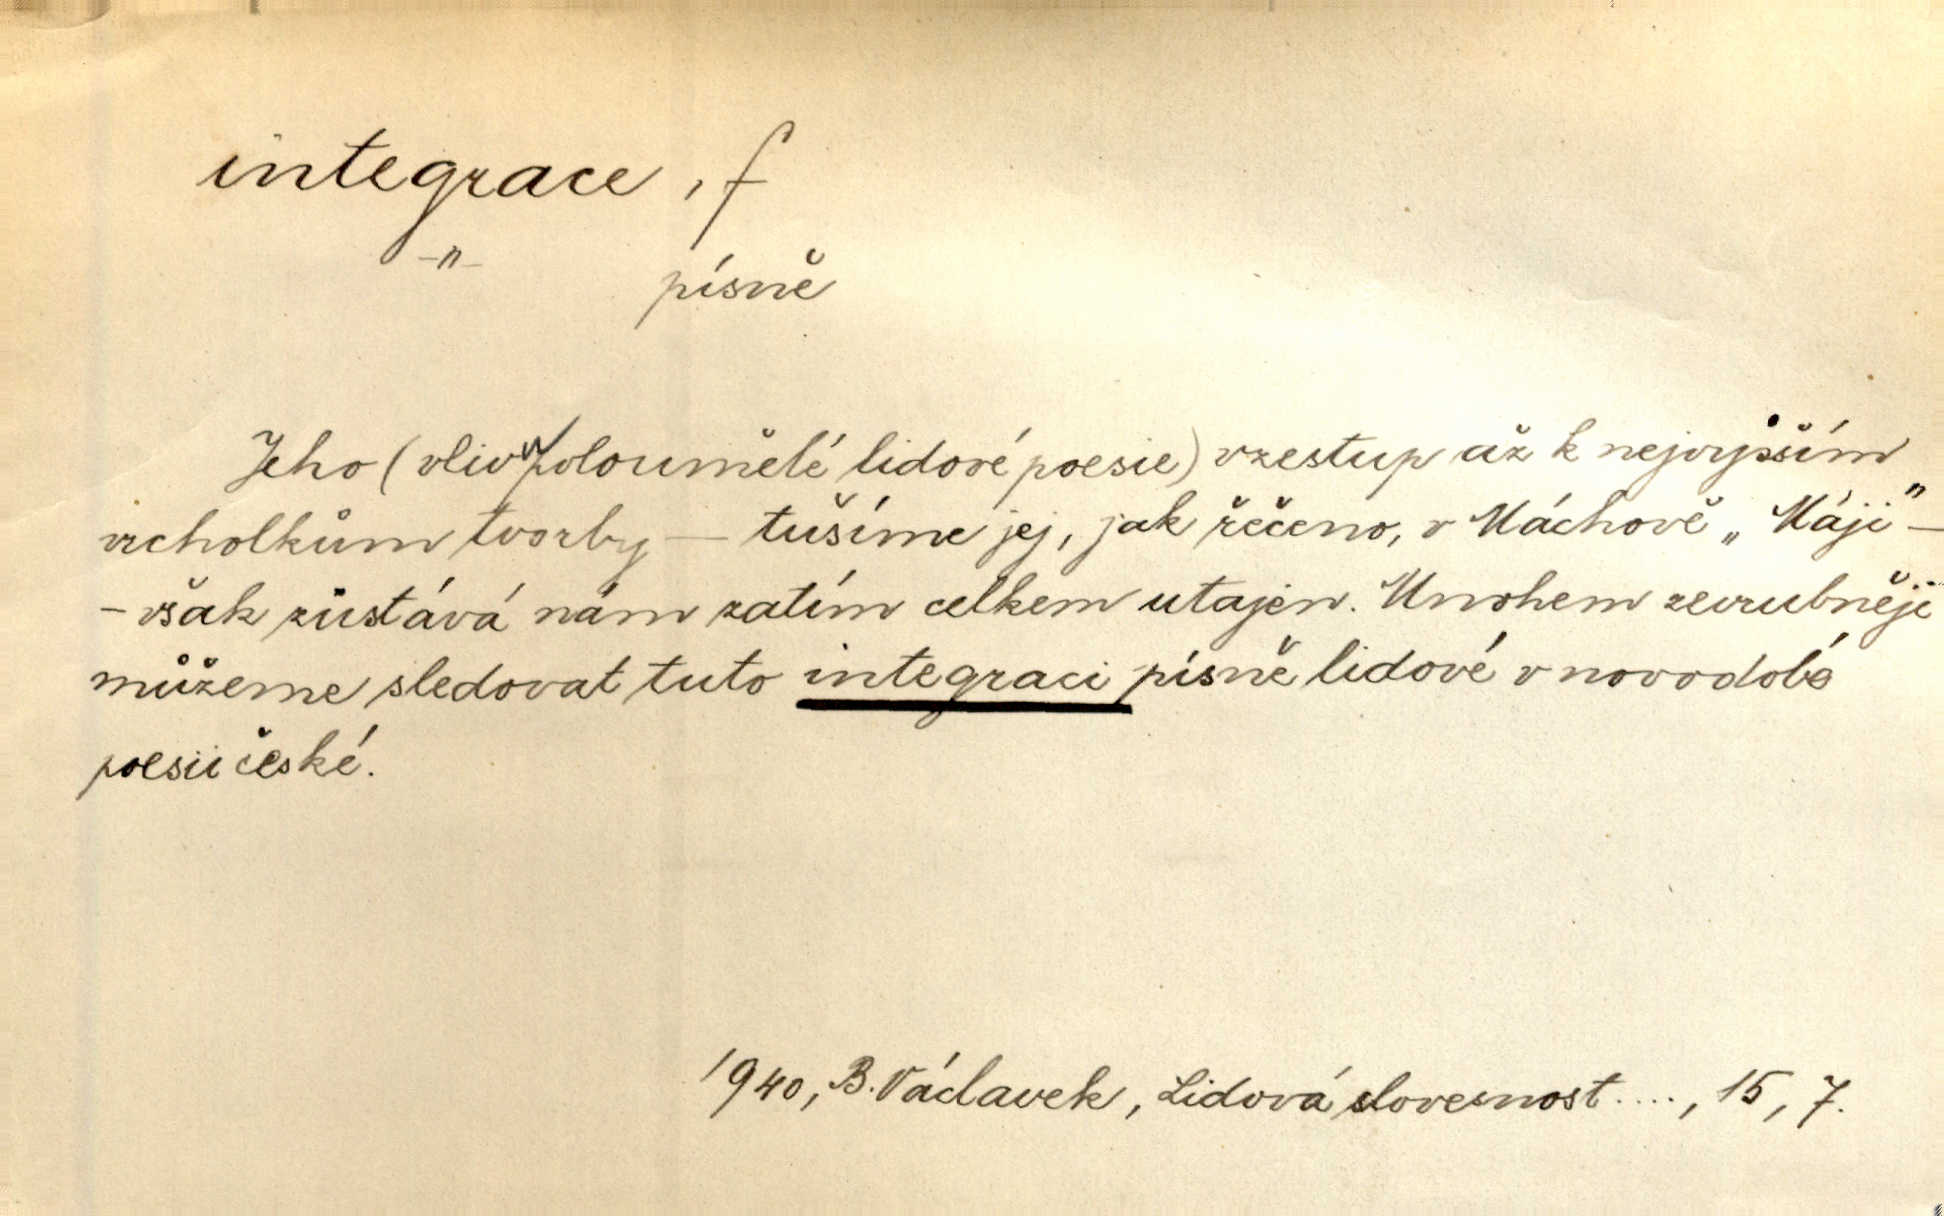 integrace, f
-"- písně
Jeho (vliv poloumělé lidové poesie) vzestup až k nejvyšším
vrcholkům tvorby — tušíme jej, jak řečeno, v Máchově „Máji" —
— však zůstává nám zatím celkem utajen. Mnohem zevrubněji
můžeme sledovat tuto integraci písně lidové v novodobé
poesii české.
1940, B. Václavek, Lidová slovesnost...., 15, 7.